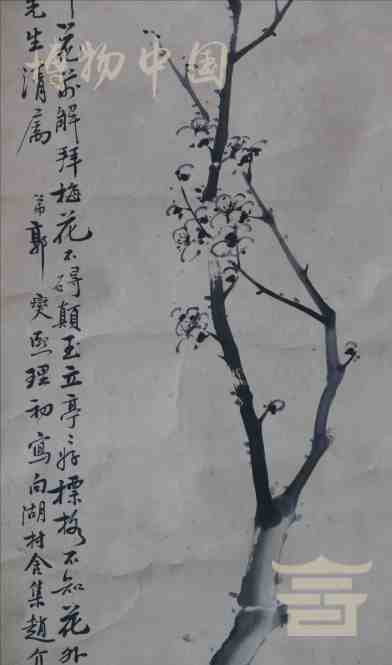 博物中国
花前解拜梅花不碍颠玉立亭亭好標格不知花外
先生清属 弟郭燮熙理初寫向湖村舍集趙介